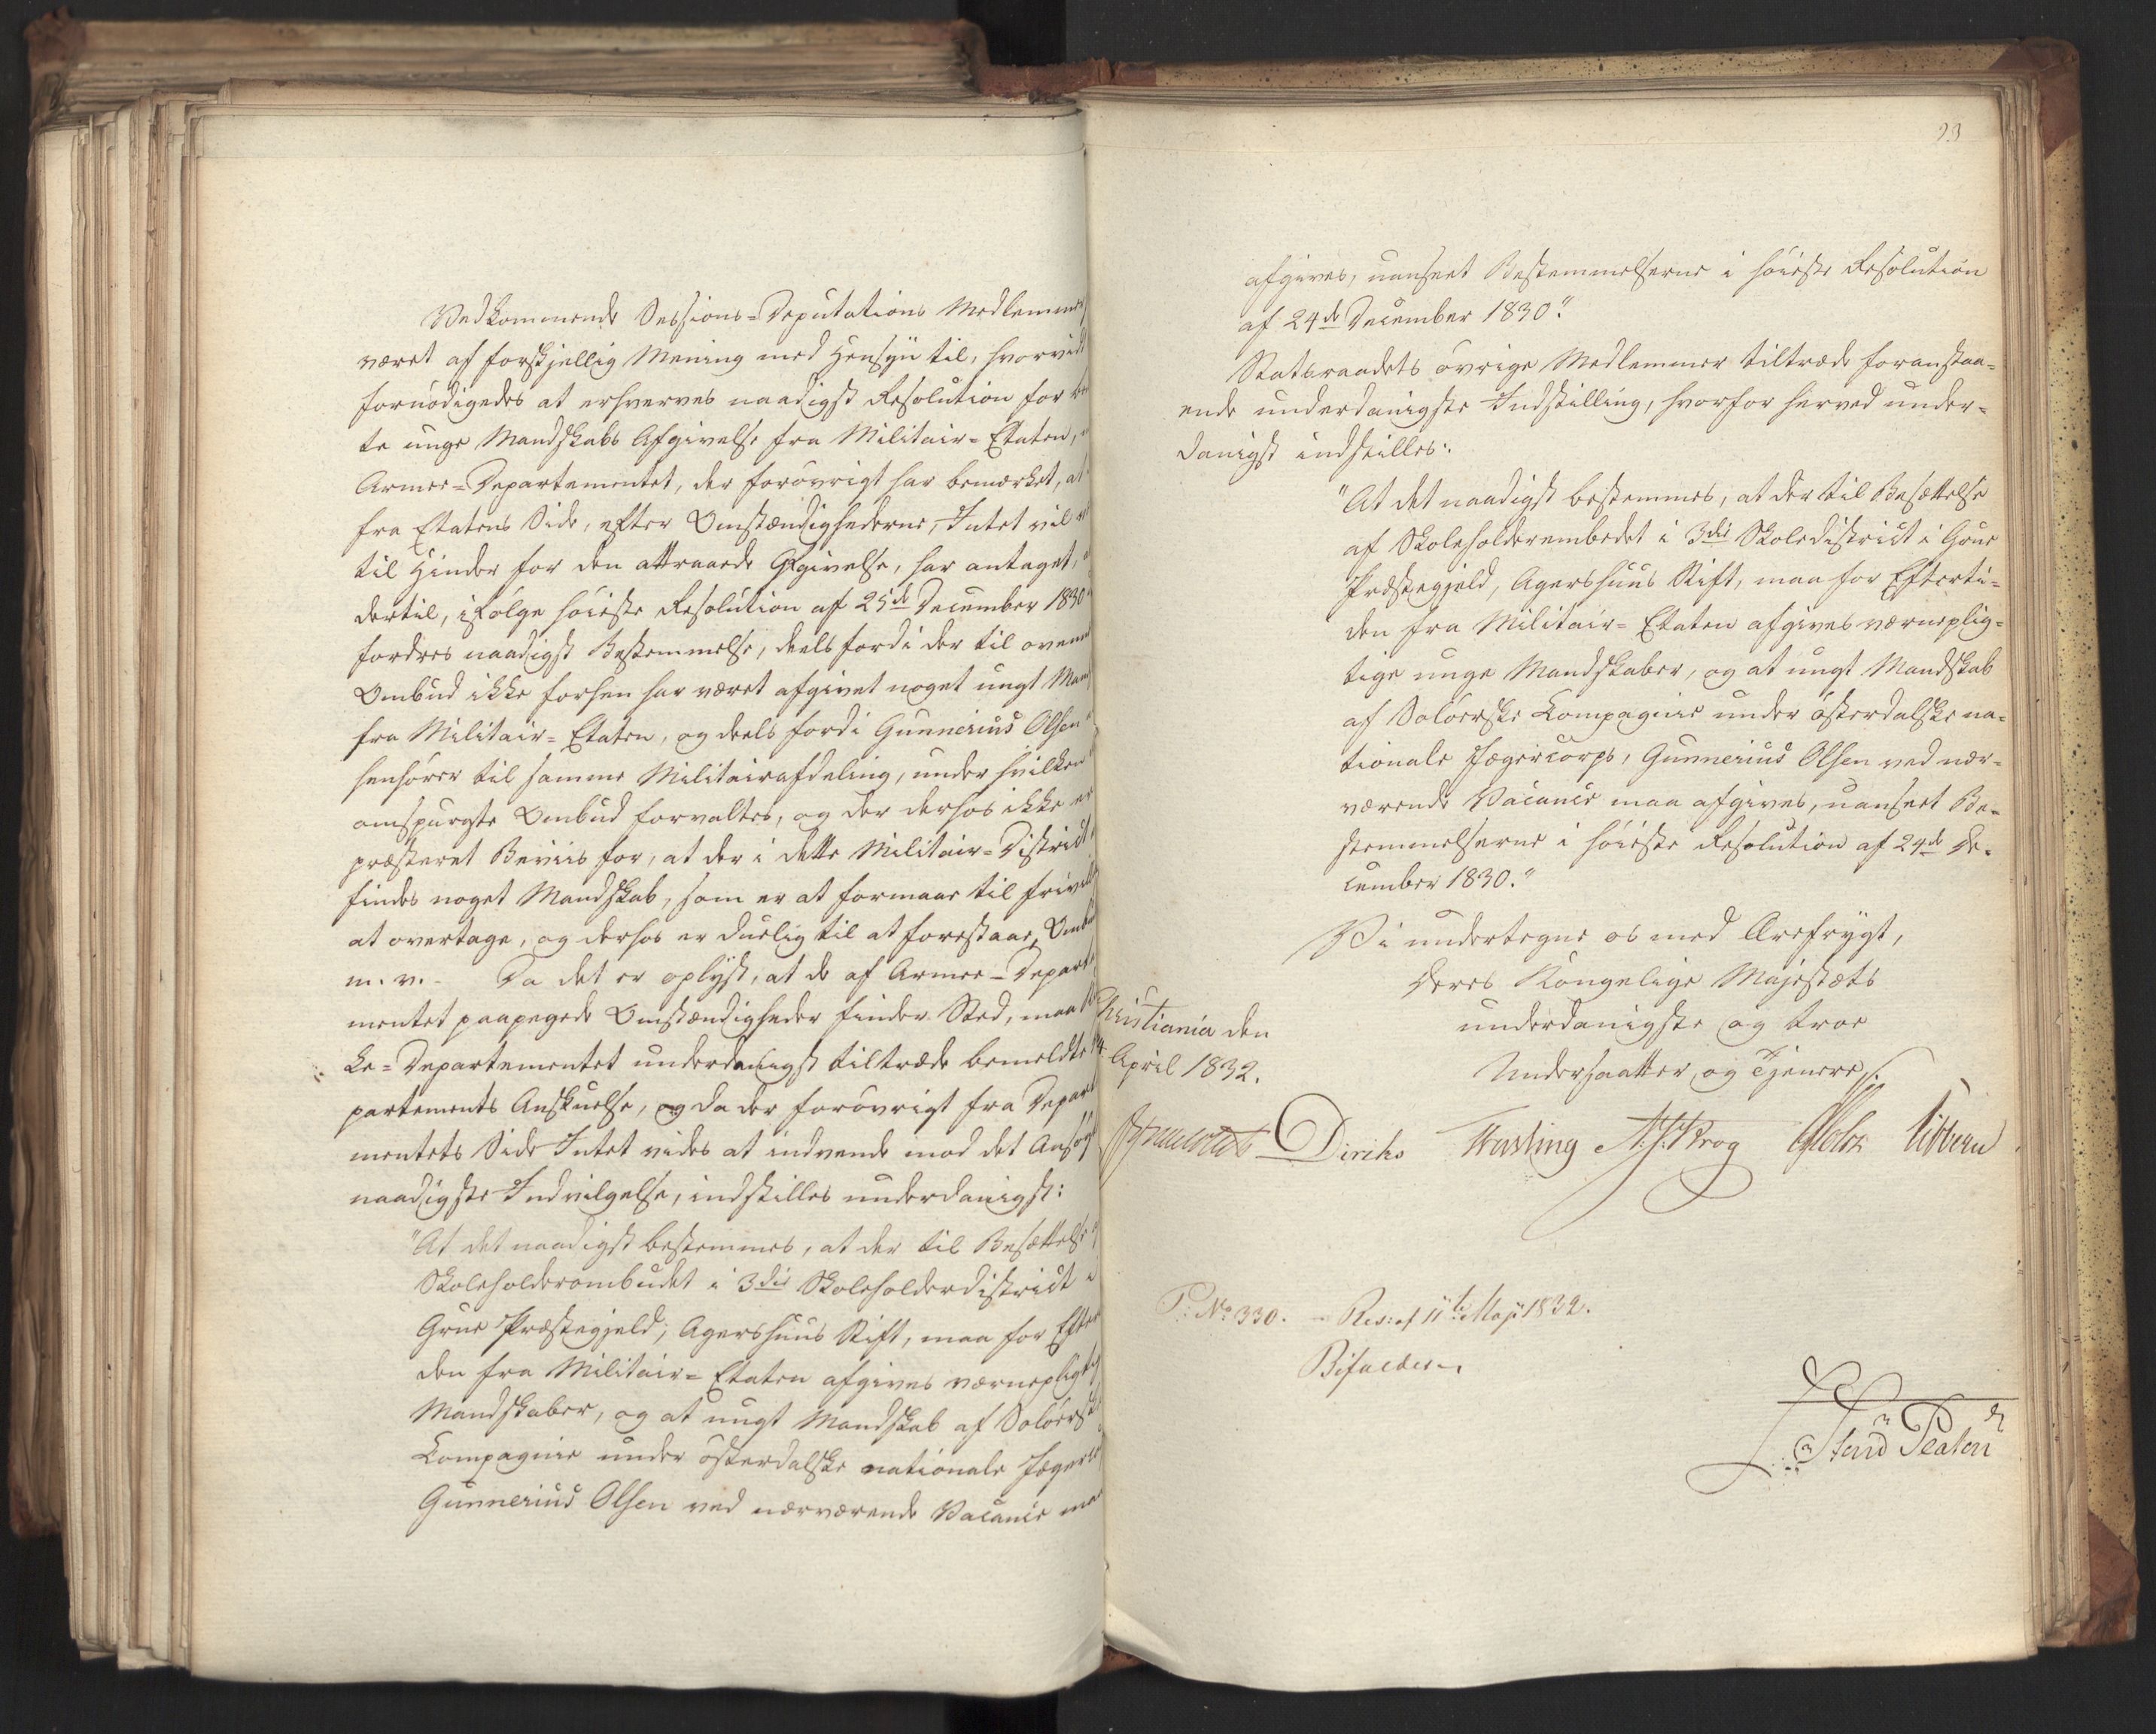 Vedkommende Sessions-Deputations Medlemmer
været af forskjellig Mening med Hensyn til, hvorvidt
fornødigedes at erhverves naadigst Resolution for
te unge Mandskabs Afgivelse fra Militair-Etaten,
Armee-Departementet, der forøvrigt har bemærket, at
fra Etatens Side, efter Omstændighederne, Intet vil
til Hinder for den attraaede Afgivelse, har antaget,
dertil, ifølge høieste Resolution af 25de December 1830
fordres naadigst Bestemmelse, deels fordi der til
Ombud ikke forhen har været afgivet noget ungt
fra Militair-Etaten, og deels fordi Gunnerius Olsen
henhører til samme Militairafdeling, under hvilken
omspurgte Ombud forvaltes, og der derhos ikke er
præsteret Beviis for, at der i dette Militair-District
findes noget Mandskab, som er at formaae til
at overtage, og derhos er duelig til at forestaae,
m. v. - Da det er oplyst, at de af Armee-Departe
mentet paapegede Omstændigheder finder Sted, maa
ke-Departementet underdanigst tiltræde bemeldte
partements Anskuelse, og da der forøvrigt fra Departe
mentets Side Intet vides at indvende mod det
naadigste Indvilgelse, indstilles underdanigst:
"At det naadigst bestemmes, at der til Besættelse
Skoleholderombudet i 3die Skoleholderdistrict i
Grue Præstegjeld, Agershuus Stift, maa for
den fra Militair-Etaten afgives
Mandskaber, og at ungt Mandskab af
Compagnie under østerdalske nationale
Gunnerius Olsen ved nærværende Vacance maa
23
afgives, uanseet Bestemmelserne i høieste Resolution
af 24de December 1830."
Statsraadets øvrige Medlemmer tiltræde foranstaa-
ende underdanigste Indstilling, hvorfor herved under-
danigst indstilles:
"At det naadigst bestemmes, at der til Besættelse
af Skoleholderembedet i 3die Skoledistrict i Grue
Præstegjeld, Agershuus Stift, maa for Efterti-
den fra Militair-Etaten afgives værneplig-
tige unge Mandskaber, og at ungt Mandskab
af Soløerske Compagnie under østerdalske na-
tionale Jægercorps, Gunnerius Olsen ved nær-
værende Vacance maa afgives, uanseet Be-
stemmelserne i høieste Resolution af 24de De-
cember 1830."
Vi undertegne os med Ærefrygt,
Deres Kongelige Majestæts
underdanigste og troe
Undersaatter og Tjenere,
Christiania den
14 April 1832.
Diriks Fasting Krog Holst Vibbern
P: No 330. - Res: af 11te Maj 1832.
Bifaldes.